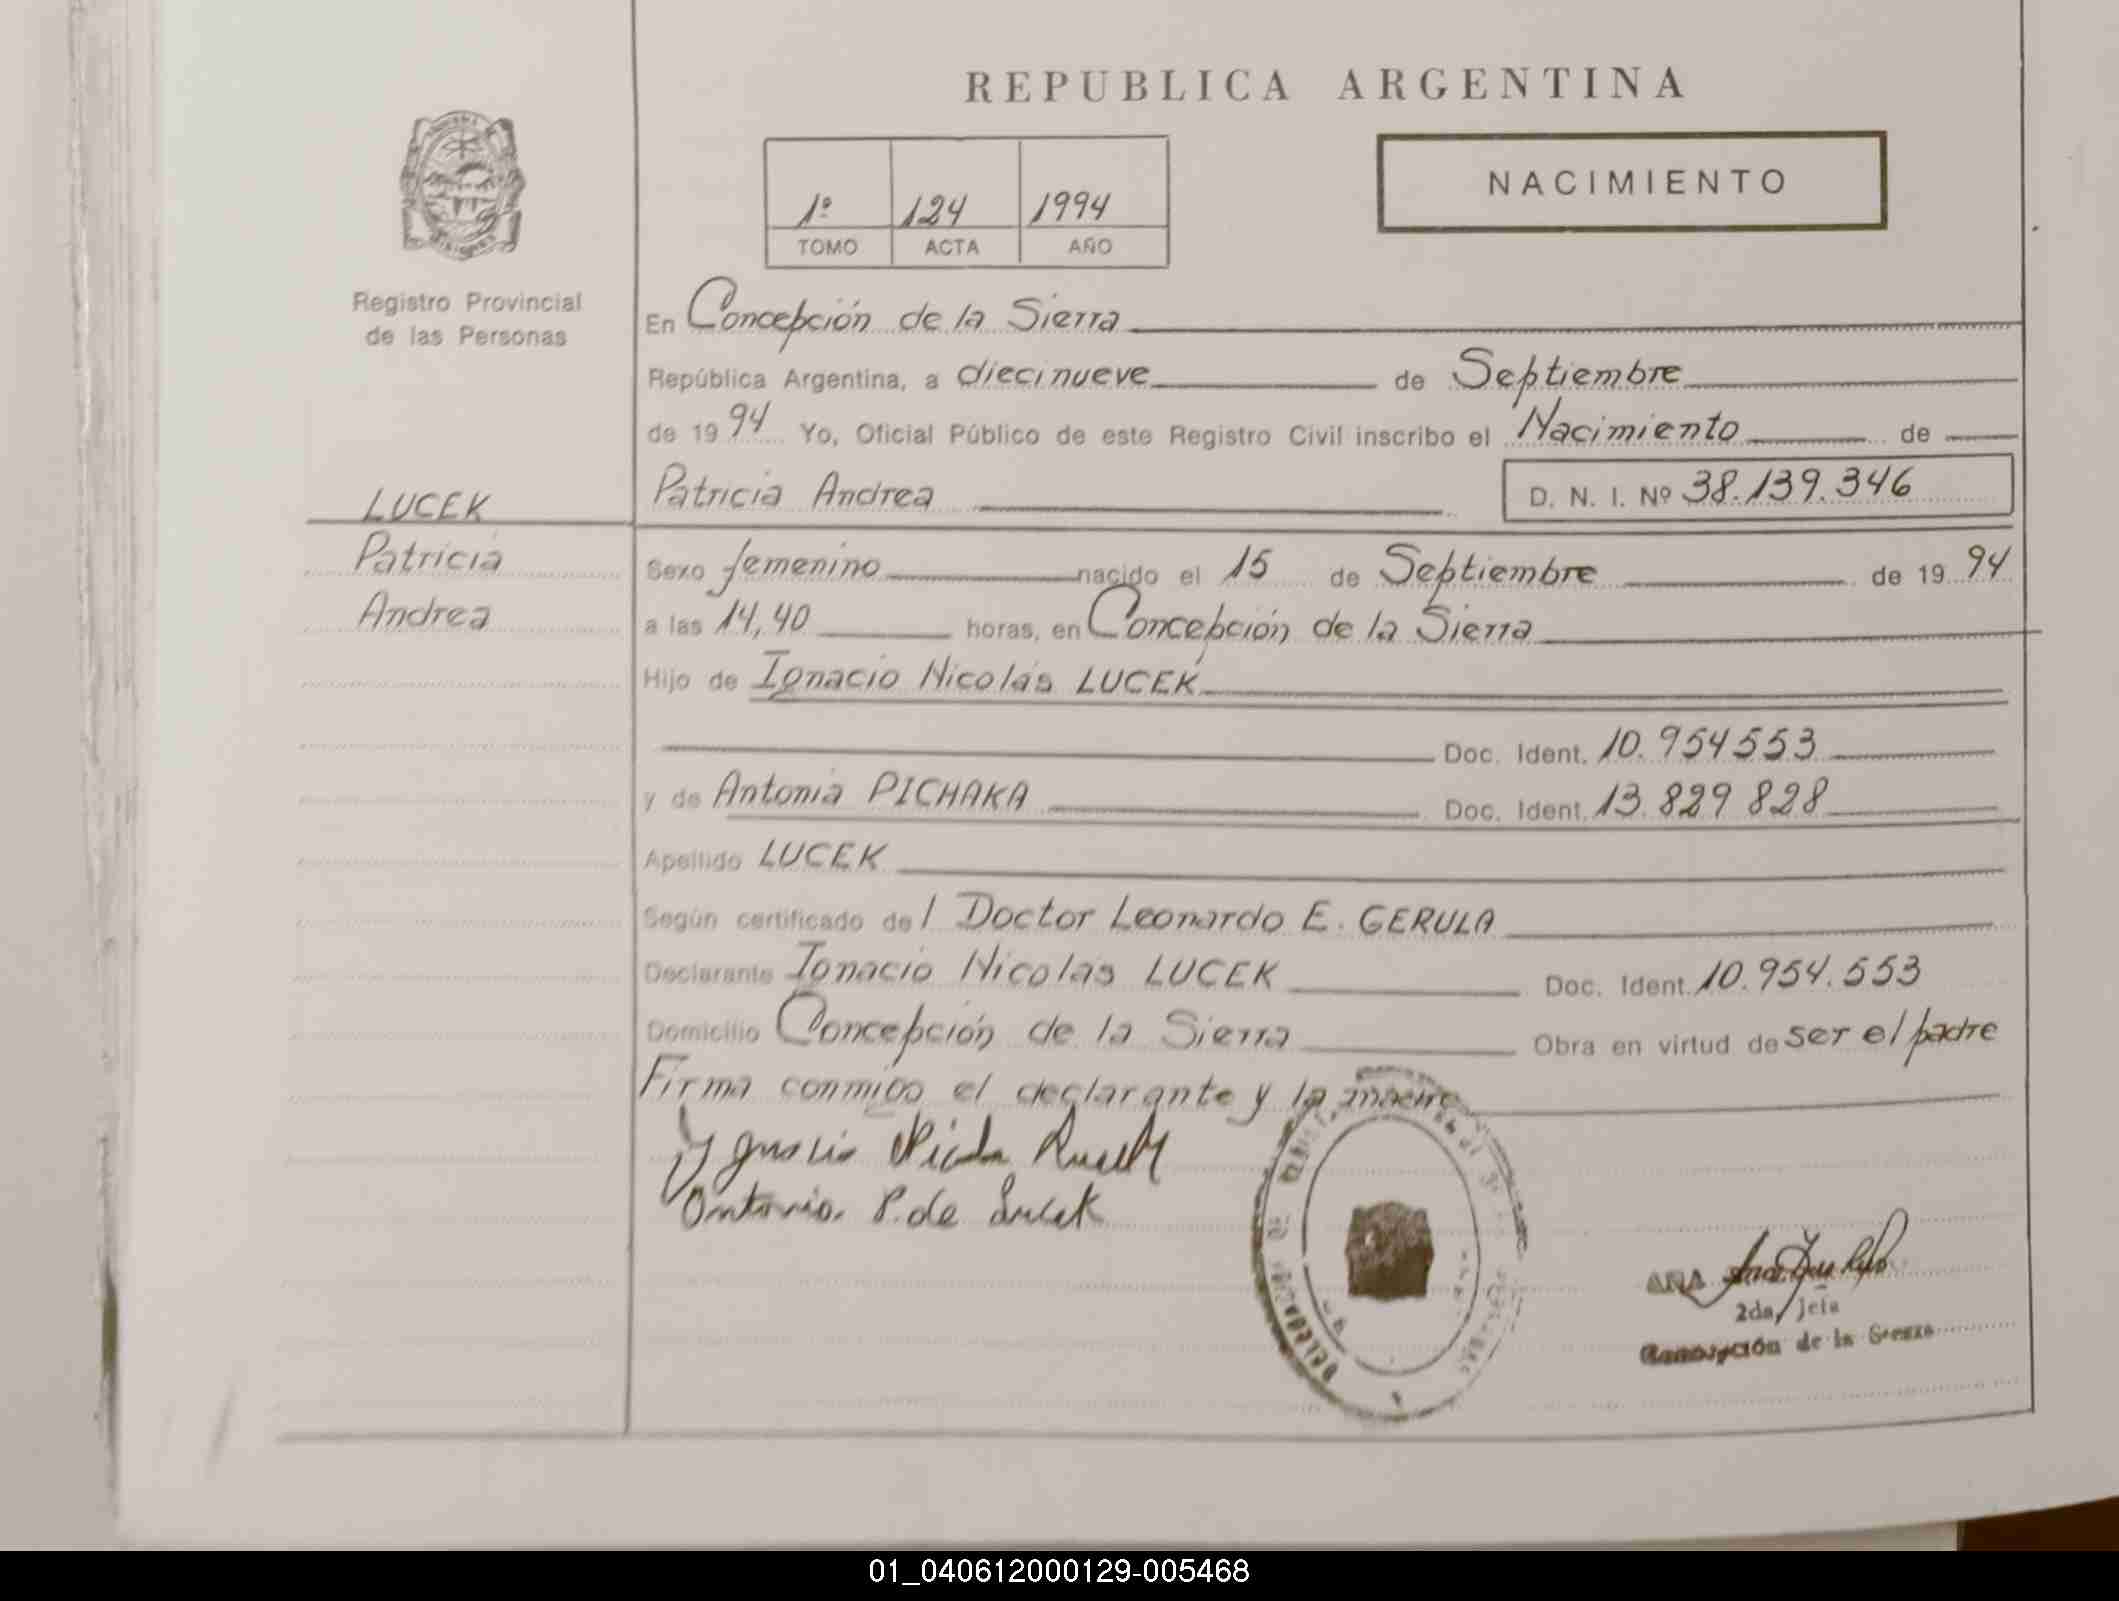 REPUBLICA ARGENTINA
1º 124 1994
TOMO ACTA AÑO
NACIMIENTO
Registro Provincial
de las Personas
En Concepción de la Sierra
República Argentina, a diecinueve de Septiembre
de 1994 Yo, Oficial Público de este Registro Civil inscribo el Nacimiento de
Patricia Andrea D. N. I. Nº 38.139.346
LUCEK
Patricia
Andrea
Sexo femenino nacido el 15 de Septiembre de 1994
a las 14,40 horas, en Concepción de la Sierra
Hijo de Ignacio Nicolás LUCEK
Doc. Ident. 10.954553
y de Antonia PICHAKA Doc. Ident. 13.829 828
Apellido LUCEK
Según certificado del Doctor Leonardo E. GERULA
Declarante Ignacio Nicolás LUCEK Doc. Ident. 10.954.553
Domicilio Concepción de la Sierra Obra en virtud de ser el padre
Firma conmigo el declarante y la madre
Antonia P. de Lucek
ANA
2da jefa
Concepción de la Sierra
01_040612000129-005468